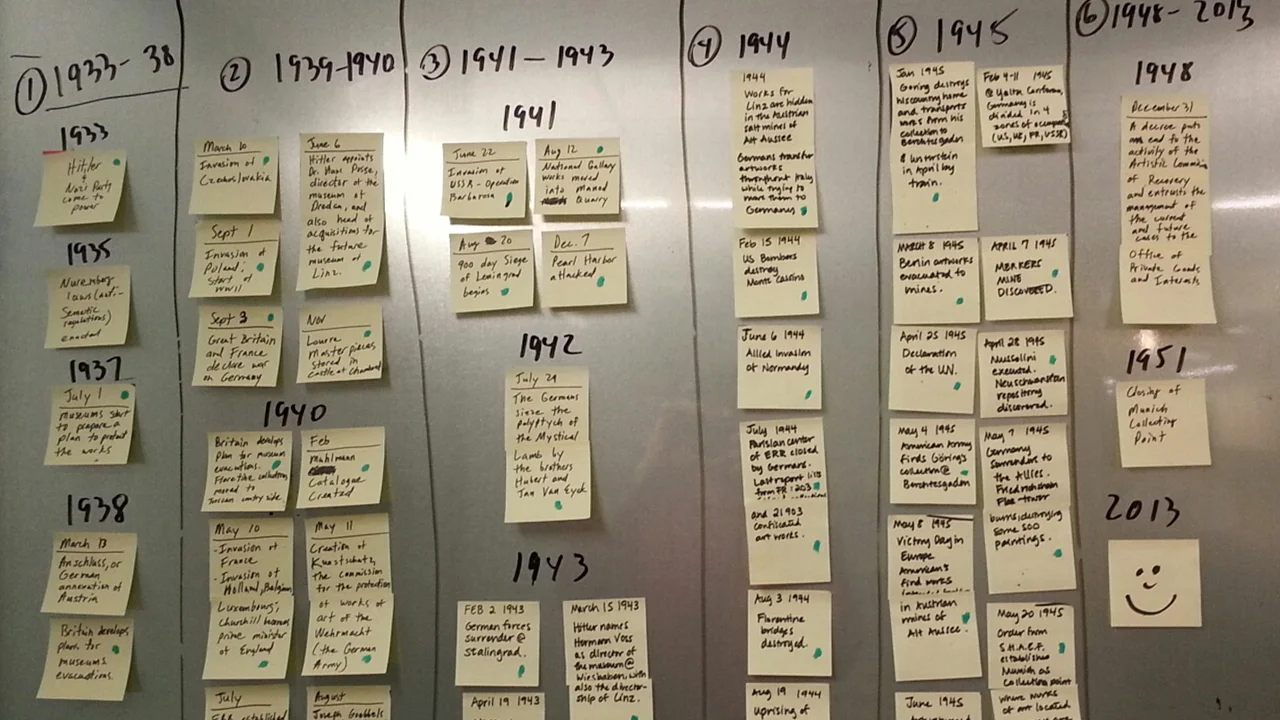 ① 1933-38
1933
Hitler
&
Nazi Party
come to
power
1935
Nuremberg
laws (anti-
Semetic
regulations)
enacted
1937
July 1
museums start
to prepare a
plan to protect
the works
1938
March 13
Anschluss, or
German
annexation of
Austria
Britain develops
plans for
museums
evacuations.
② 1939-1940
March 10
Invasion of
Czechoslovakia
Sept 1
Invasion of
Poland;
start of
WWII
Sept 3
Great Britain
and France
declare war
on Germany
June 6
Hitler appoints
Dr. Hans Posse,
director of the
museum of
Dresden, and
also head of
acquisitions for
the future
museum of
Linz.
Nov
Louvre
Masterpieces
stored in
Castle of Chambord
1940
Britain develops
plan for museum
evacuations.
moved to
Tuscan country side.
Feb
Muhlmann
Catalogue
Created
May 10
- Invasion of
France
- Invasion of
Holland, Belgium,
Luxembourg;
Churchill becomes
prime minister
of England
May 11
Creation of
Kunstschutz,
the commission
for the protection
of works of
art of the
Wehrmacht
(the German
Army)
July
ERR established
August
Joseph Goebbels
③ 1941-1943
1941
June 22
Invasion of
USSR - Operation
Barbarosa
Aug 12
National Gallery
works moved
into Manod
Quarry
Aug 20
900 day Siege
of Leningrad
begins
Dec. 7
Pearl Harbor
attacked
1942
July 29
The Germans
sieze the
polyptych of
the Mystical
Lamb by
the brothers
Hubert and
Jan Van Eyck
1943
FEB 2 1943
German forces
surrender @
Stalingrad.
March 15 1943
Hitler names
Hermann Voss
as director of
the museum @
Wiesbaben, with
also the director-
ship of Linz.
April 19 1943
④ 1944
1944
Works for
Linz are hidden
in the Austrian
salt mines of
Alt Aussee
Germans transfer
artworks
throughout Italy
while trying to
move them to
Germany
Feb 15 1944
US Bombers
destroy
Monte Cassino
June 6 1944
Allied Invasion
of Normandy
July 1944
Parisian center
of ERR closed
by Germans.
Last report
and 21903
confiscated
art works.
Aug 3 1944
Florentine
bridges
destroyed.
Aug 19 1944
Uprising of
⑤ 1945
Jan 1945
Goring destroys
his country home
and transports
works from his
collection to
Berchtesgaden
& Unterstein
in April by
train.
Feb 4-11 1945
@ Yalta Conference,
Germany is
divided in 4
zones of occupation
(US, UK, FR, USSR)
MARCH 8 1945
Berlin artworks
evacuated to
mines.
APRIL 7 1945
MERKERS
MINE
DISCOVERED.
April 25 1945
Declaration
of the U.N.
April 28 1945
Mussolini
executed.
Neuschwanstein
repository
discovered.
May 4 1945
American Army
finds Göring's
collection @
Berchtesgaden
May 7 1945
Germany
surrenders to
the Allies.
Friedrichshain
Flak-tower
burns, destroying
some 500
paintings.
May 8 1945
Victory Day in
Europe
American's
find works
in Austrian
mines of
Alt Aussee.
May 20 1945
Order from
S.H.A.E.F.
establishes
Munich as
Collection point
where works
of art located
June 1945
⑥ 1948-2013
1948
December 31
A decree puts
an end to the
activity of the
Artistic Commission
of Recovery
and entrusts the
management of
the current
and future
cases to the
Office of
Private Goods
and Interests
1951
Closing of
Munich
Collecting
Point
2013